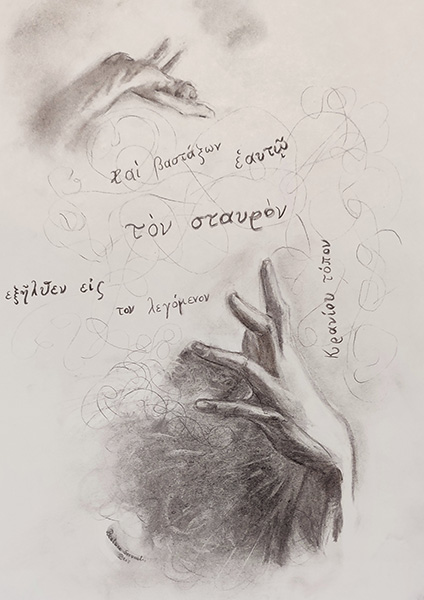 καὶ βαστάζων ἑαυτῷ
τὸν σταυρόν
ἐξῆλθεν εἰς
τον λεγόμενον
Κρανίου τόπον